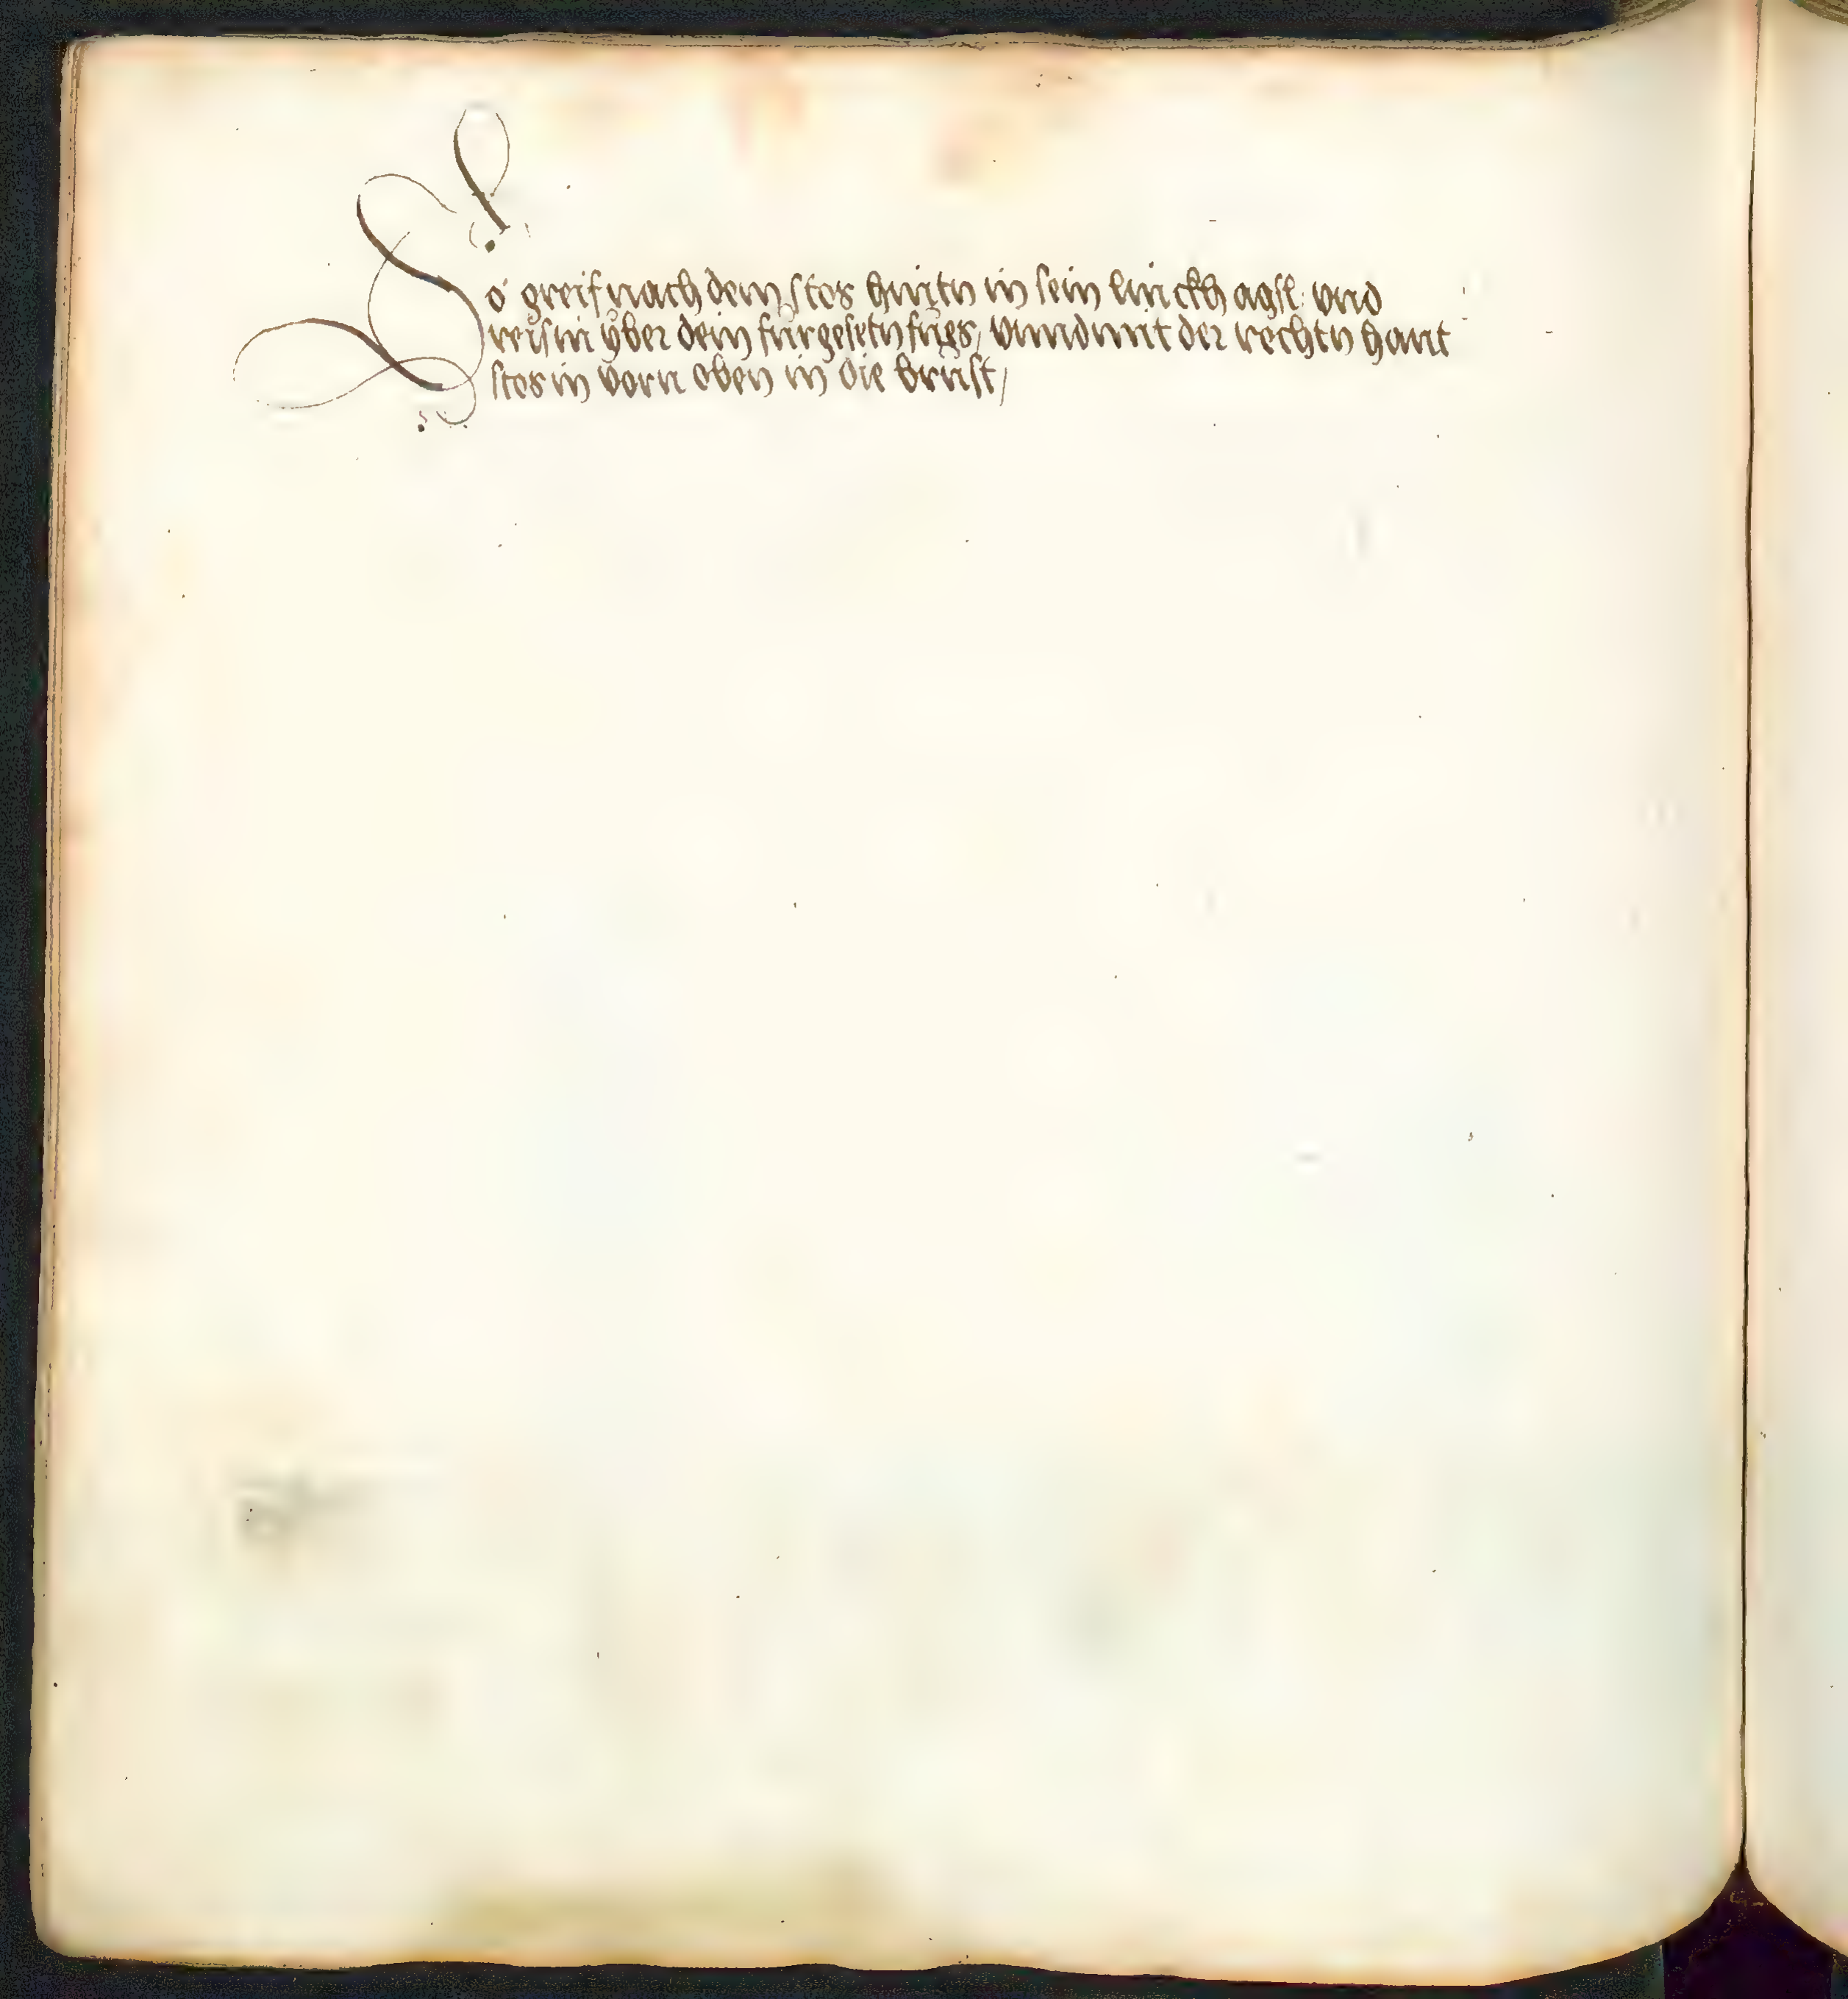 So greif nach dem stos hintn in sein linckh agsl und
reis in yber dein fürgesetn fües, vnnd mit der rechtn hant
stos in vorn oben in die brust/